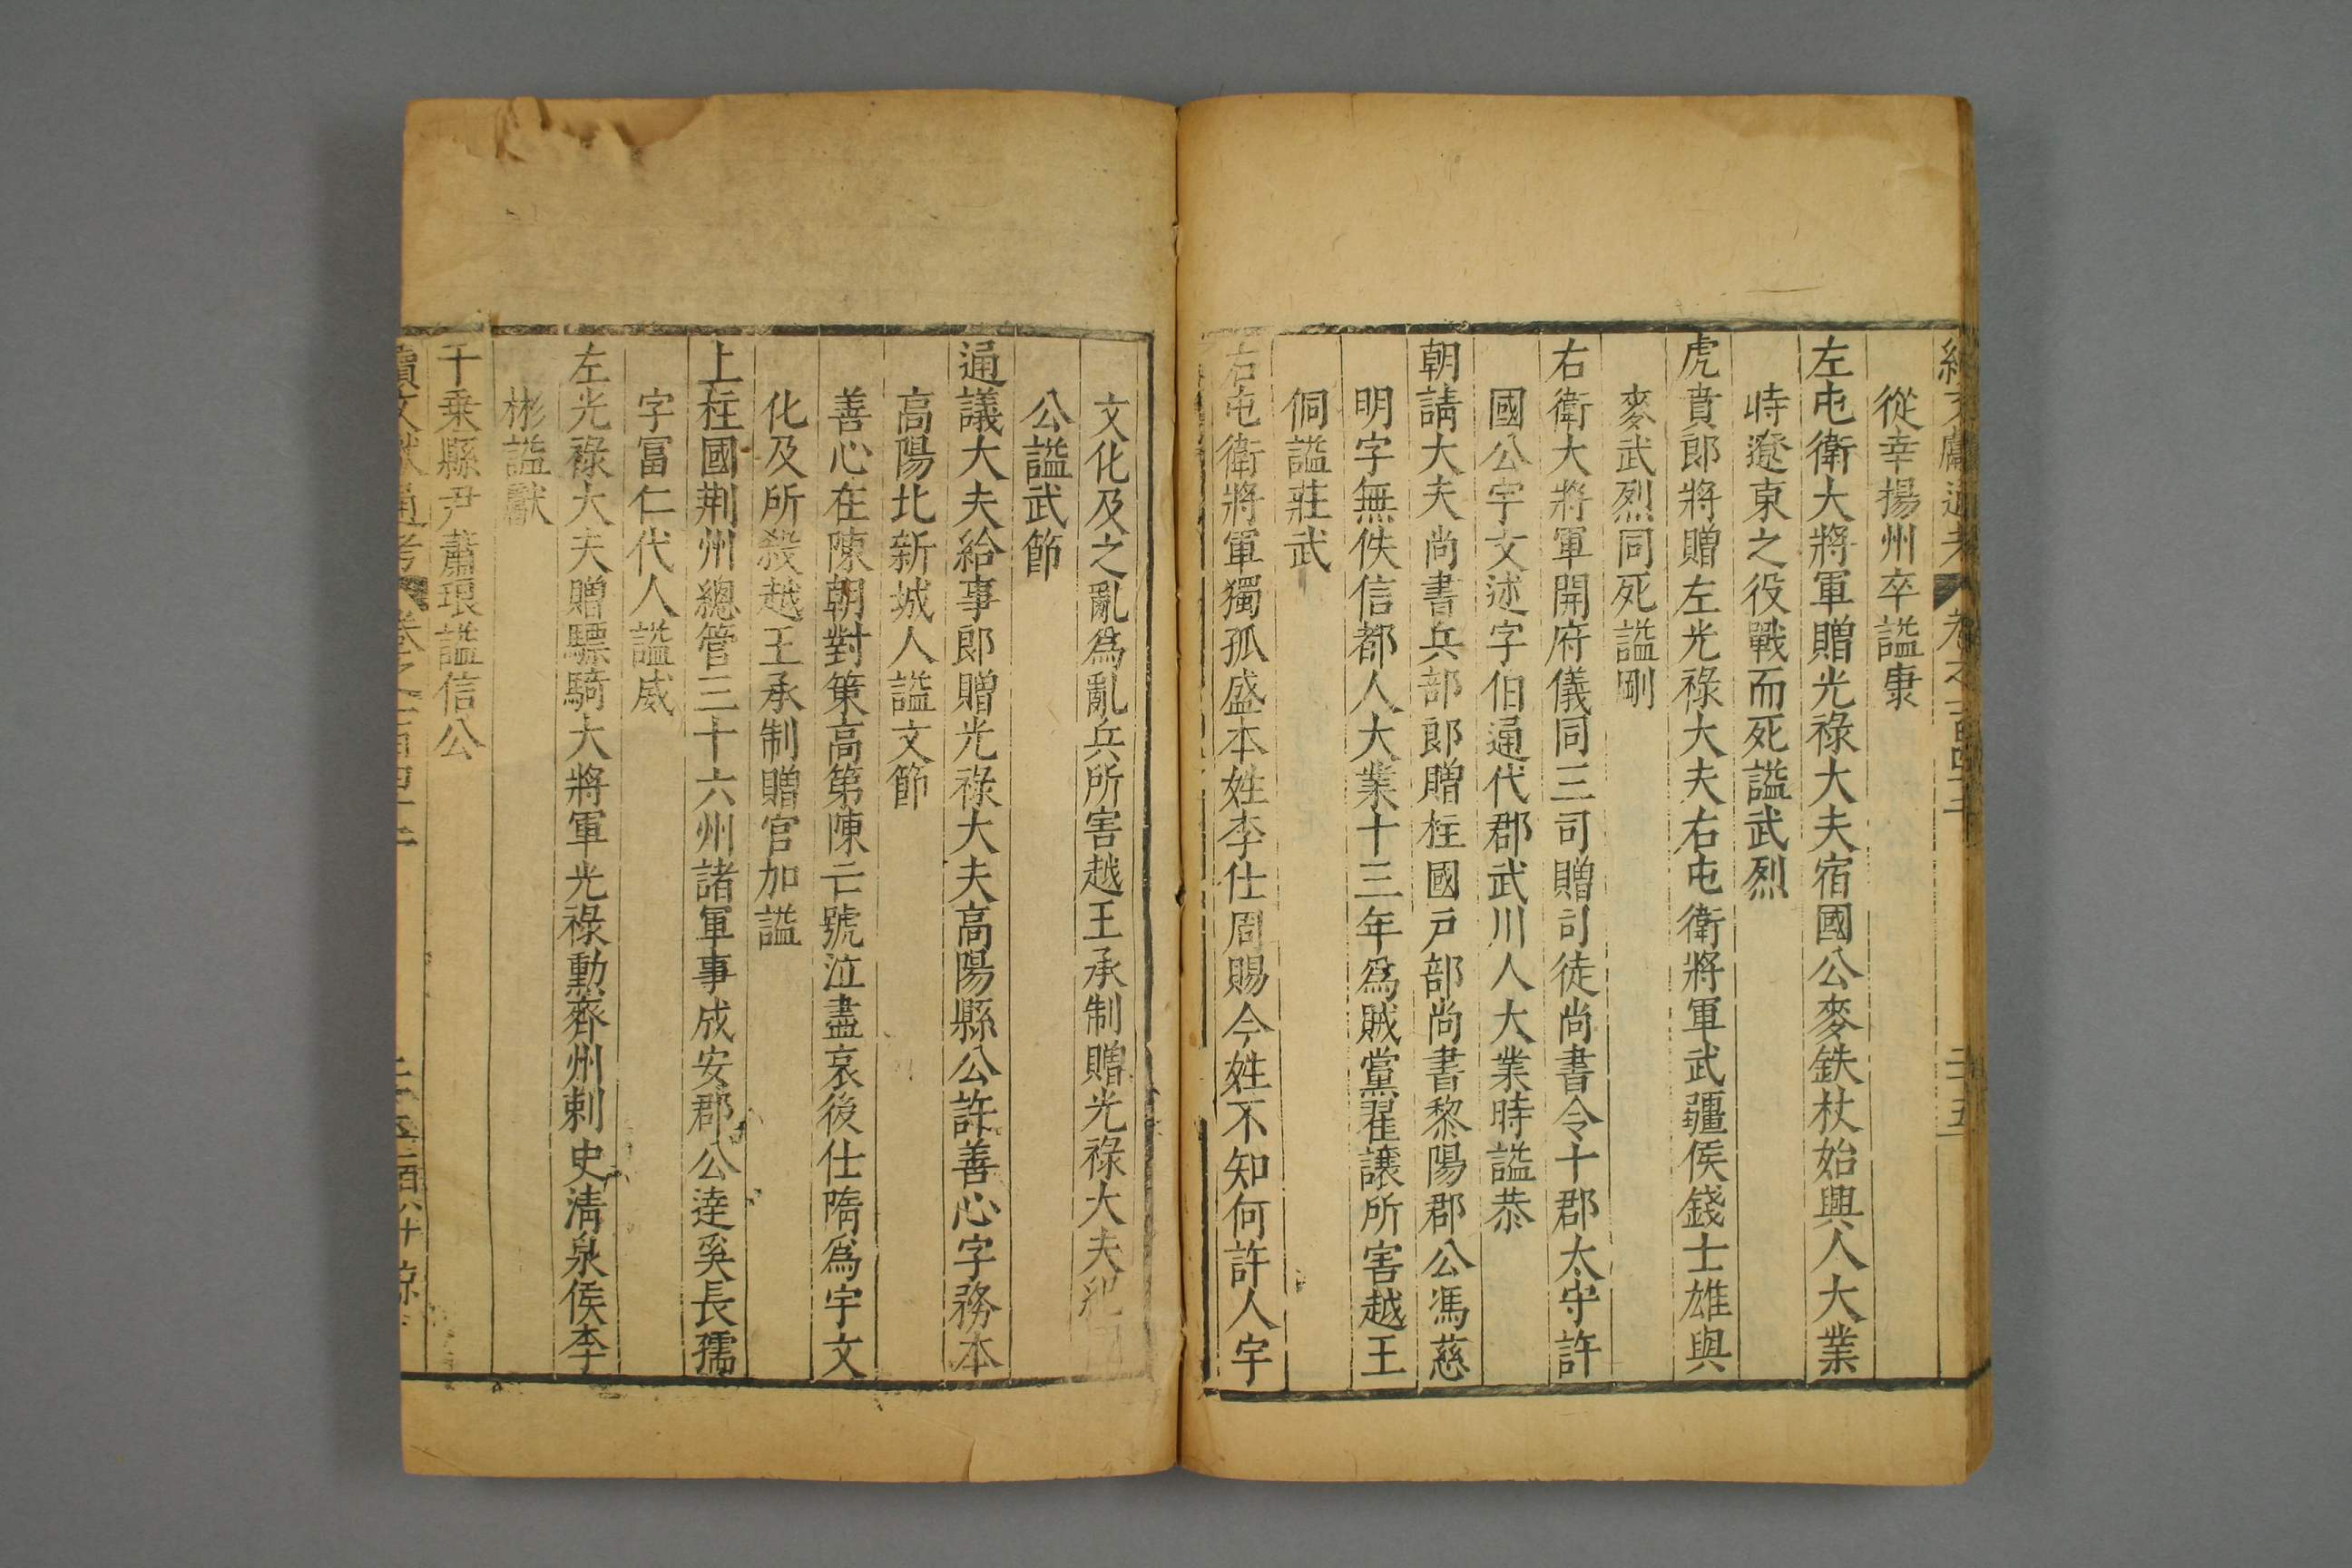 續文獻通考 卷之一百四十二 二十五
從幸揚州卒謚康
左屯衛大將軍贈光祿大夫宿國公麥鉄杖始興人大業
時遼東之役戰而死謚武烈
虎賁郎將贈左光祿大夫右屯衛將軍武疆侯錢士雄與
麥武烈同死謚剛
右衛大將軍開府儀同三司贈司徒尚書令十郡太守許
國公宇文述字伯通代郡武川人大業時謚恭
朝請大夫尚書兵部郎贈柱國戶部尚書黎陽郡公馮慈
明字無佚信都人大業十三年爲賊黨翟讓所害越王
侗謚莊武
右屯衛將軍獨孤盛本姓李仕周賜今姓不知何許人宇
文化及之亂爲亂兵所害越王承制贈光祿大夫紀
公謚武節
通議大夫給事郎贈光祿大夫高陽縣公許善心字務本
高陽北新城人謚文節
善心在陳朝對策高第陳亡號泣盡哀後仕隋爲宇文
化及所殺越王承制贈官加謚
上柱國荆州總管三十六州諸軍事成安郡公達奚長孺
字冨仁代人謚威
左光祿大夫贈驃騎大將軍光祿勳齊州刺史清泉侯李
彬謚獻
千乗縣尹蕭琅謚信公
續文獻通考 卷之一百四十二